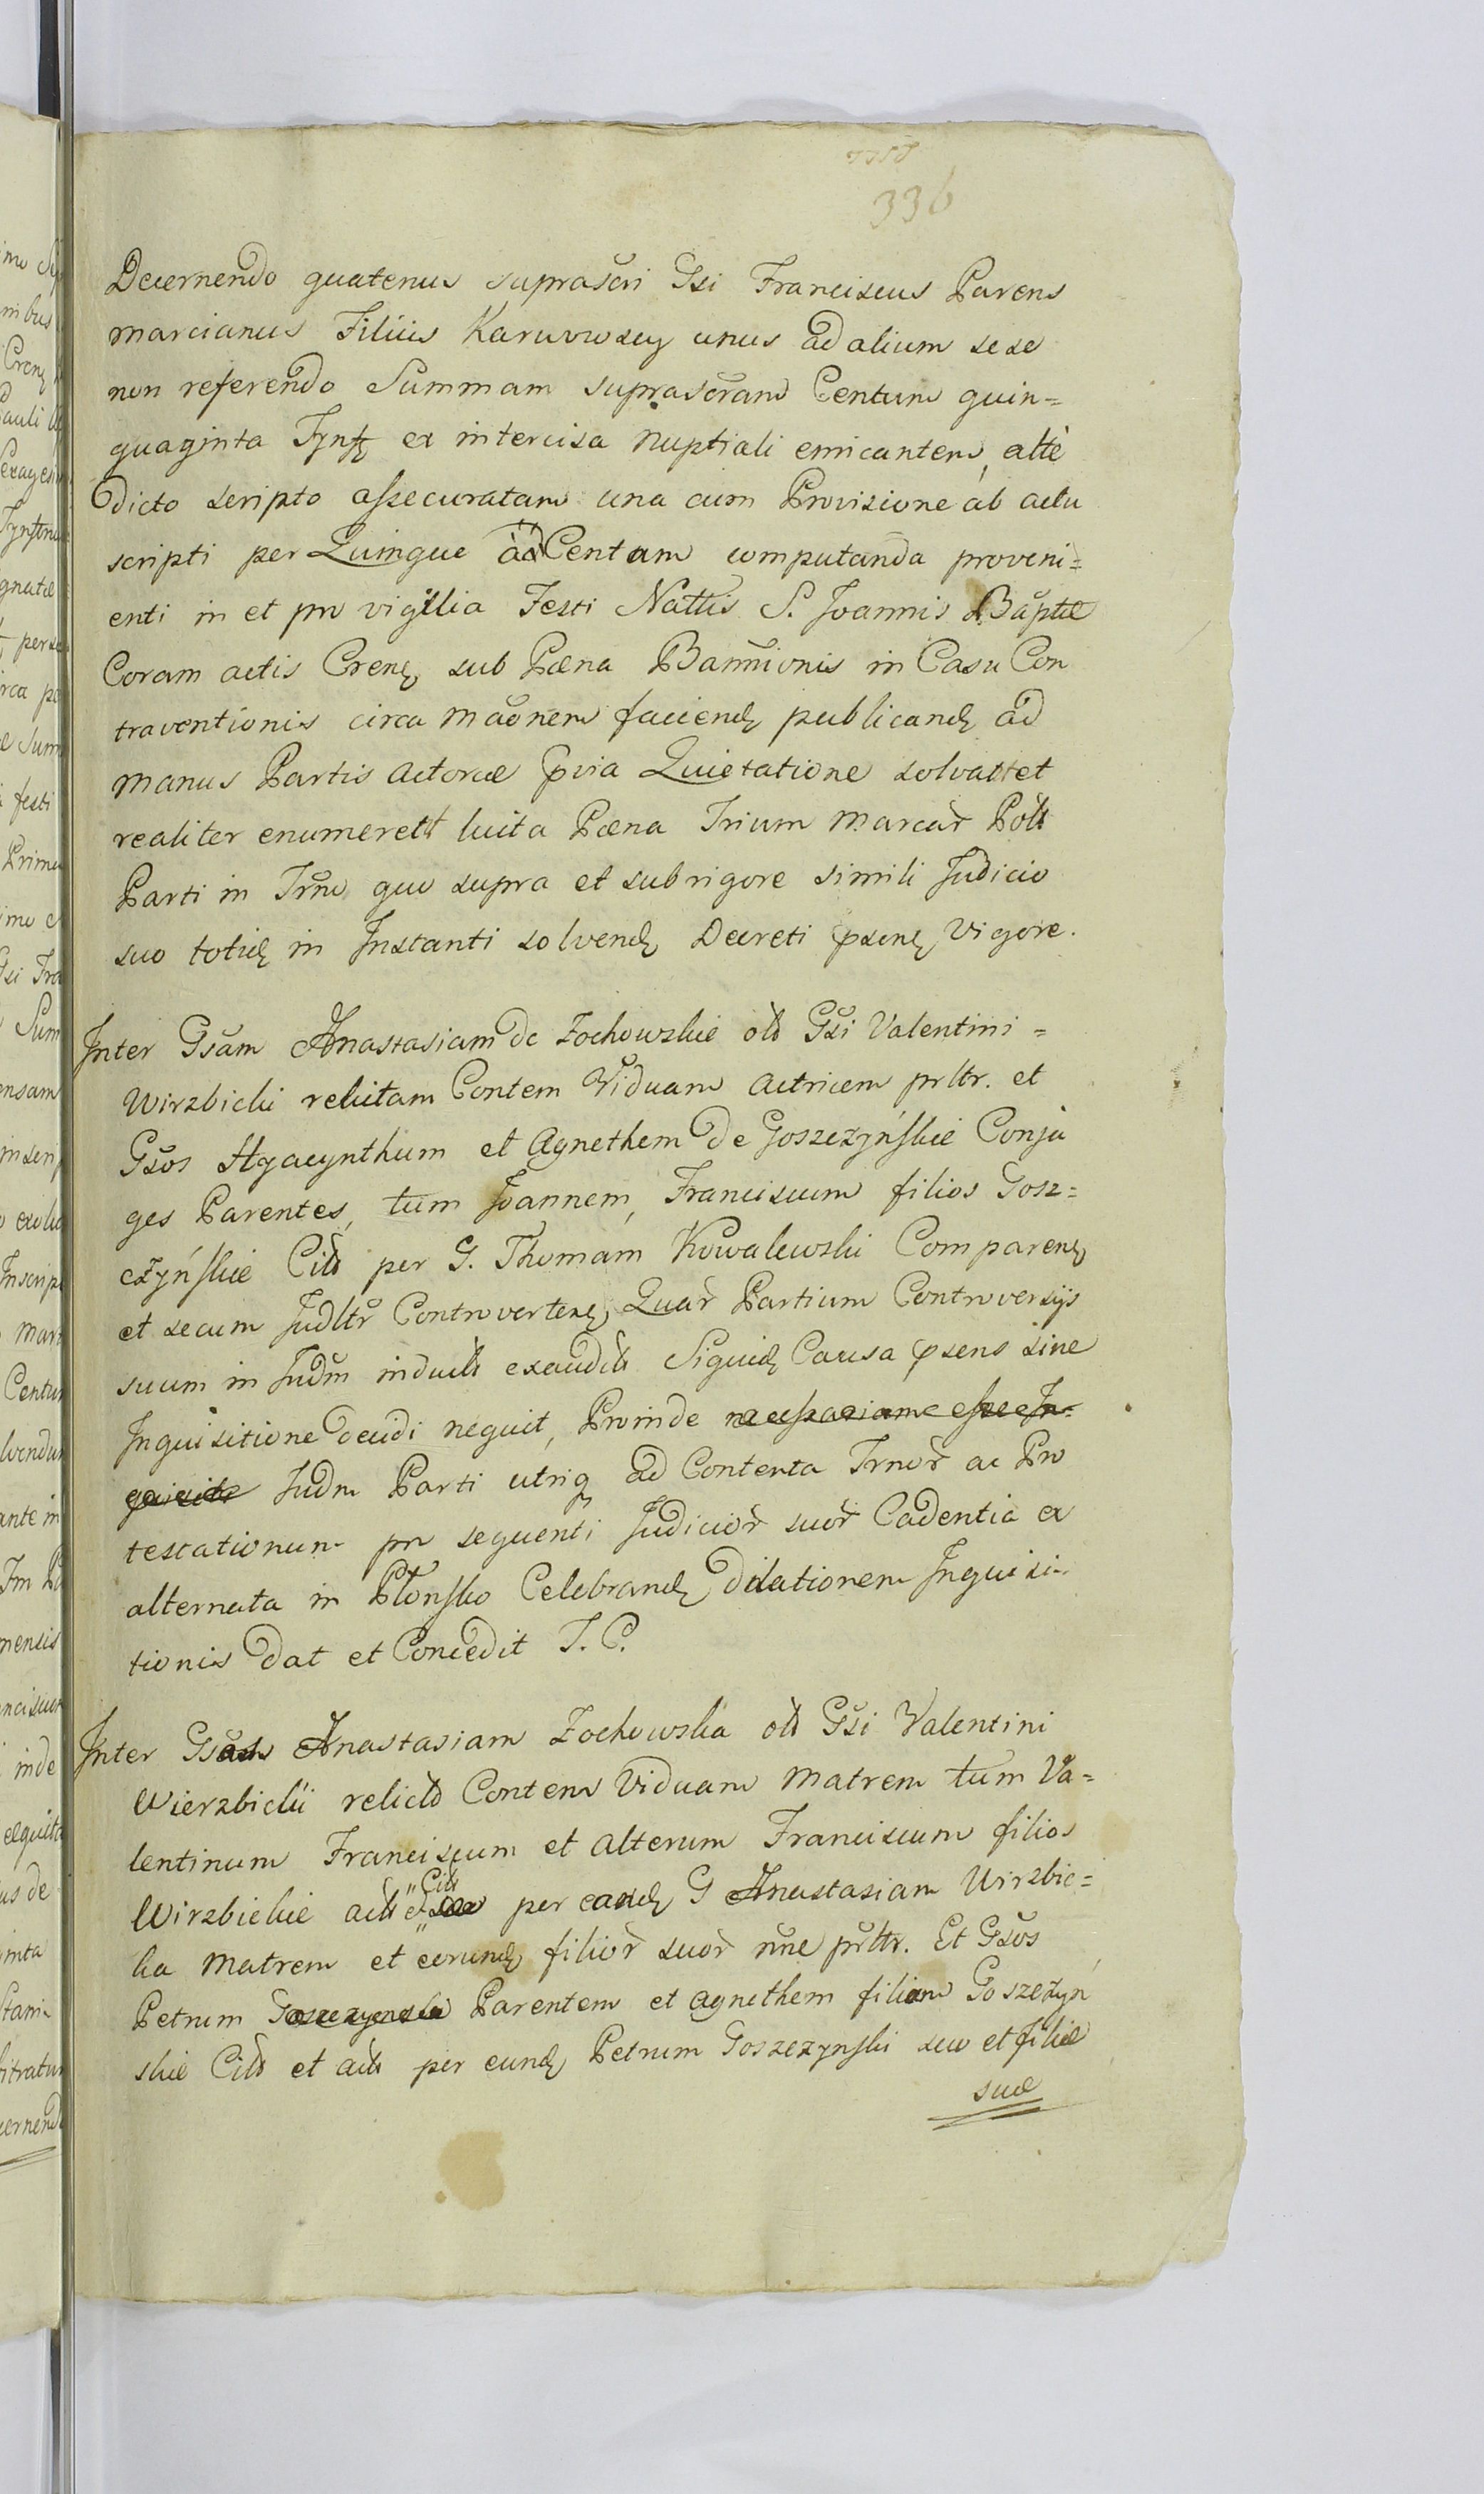 336
Decernendo quatenus suprascri Gsi Franciscus Parens
Marcianus Filiis Karwowscy unus ad alium sese
non referendo Summam suprascram Centum quin=
quaginta Tynf ex intercisa Nuptiali emicantem, alte
dicto scripto assecuratam una cum Provisione ab actu
scripti per Quinque ad Centum computanda proveni=
enti in et pro vigilia Festi Nattis S. Joannis Baptæ
Coram actis Cren sub Pæna Bannionis in Casu Con
traventionis circa maōnem faciend publicand ad
manus Partis Actoreæ pvia Quietatione solvat et
realiter enumeret luita Pæna Trium Marcar Poll
Parti in Trno quo supra et sub rigore simili Judicio
suo totid in Instanti solvend Decreti psent Vigore.
Inter Gsam Anastasiam de Zochowskie oli Gsi Valentini =
Wirzbicki relictam Contem Viduam Actricem prltr. et
Gsos Hyacynthum et Agnethem de Goszczyńskie Conju
ges Parentes, tum Joannem, Franciscum filios Gosz=
czyńskie Citt per G. Thomam Kowalewski Comparen
et secum Judltr Controverten, Quar Partium Controversijs
suum in Judm induct exaudit Siquid Causa psens sine
Inquisitione decidi nequit, Proinde necessariam esse In=
quisite Judm Parti utriq ad Contenta Trnor ac Pro
testationum pro sequenti Judicior suor Cadentia ex
alternata in Płonsko Celebrand dilationem Inquisi-
tionis dat et Concedit T. P.
Inter Gsas Anastasiam Zochowska oli Gsi Valentini
Wierzbickii relicta Contem Viduam Matrem tum Va=
lentinum Franciscum et alterum Franciscum filios
Citt
Wirzbickie act et per eand G Anastasiam Wirzbic=
ka Matrem et eorund filior suor nne prltr. Et Gsos
Petrum Parentem et Agnethem filiam Goszczyń
skie Citt et act per eund Petrum Goszczynski suo et filiæ
suæ